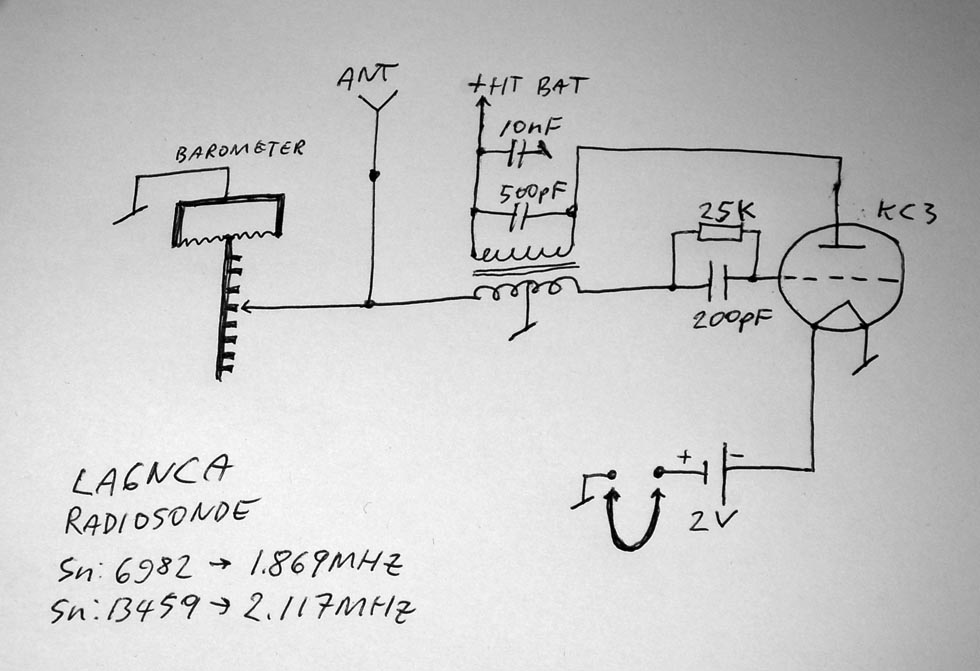 ANT
+HT BAT
10nF
BAROMETER
500pF
25K
KC3
200pF
+ -
2V
LA6NCA
RADIOSONDE
Sn: 6982 → 1.869MHZ
Sn: 13459 → 2.117MHZ